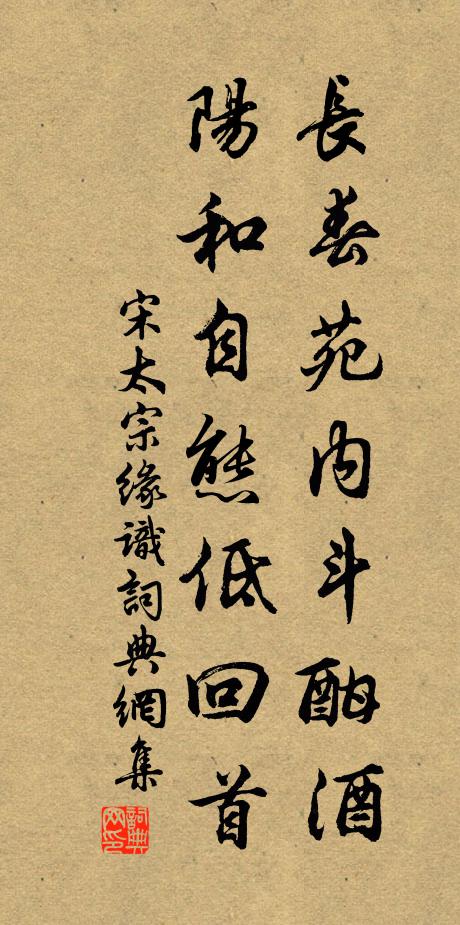 長春苑内斗酣酒
陽和自態低回首
宋太宗緣識詞典網集
詞典网印